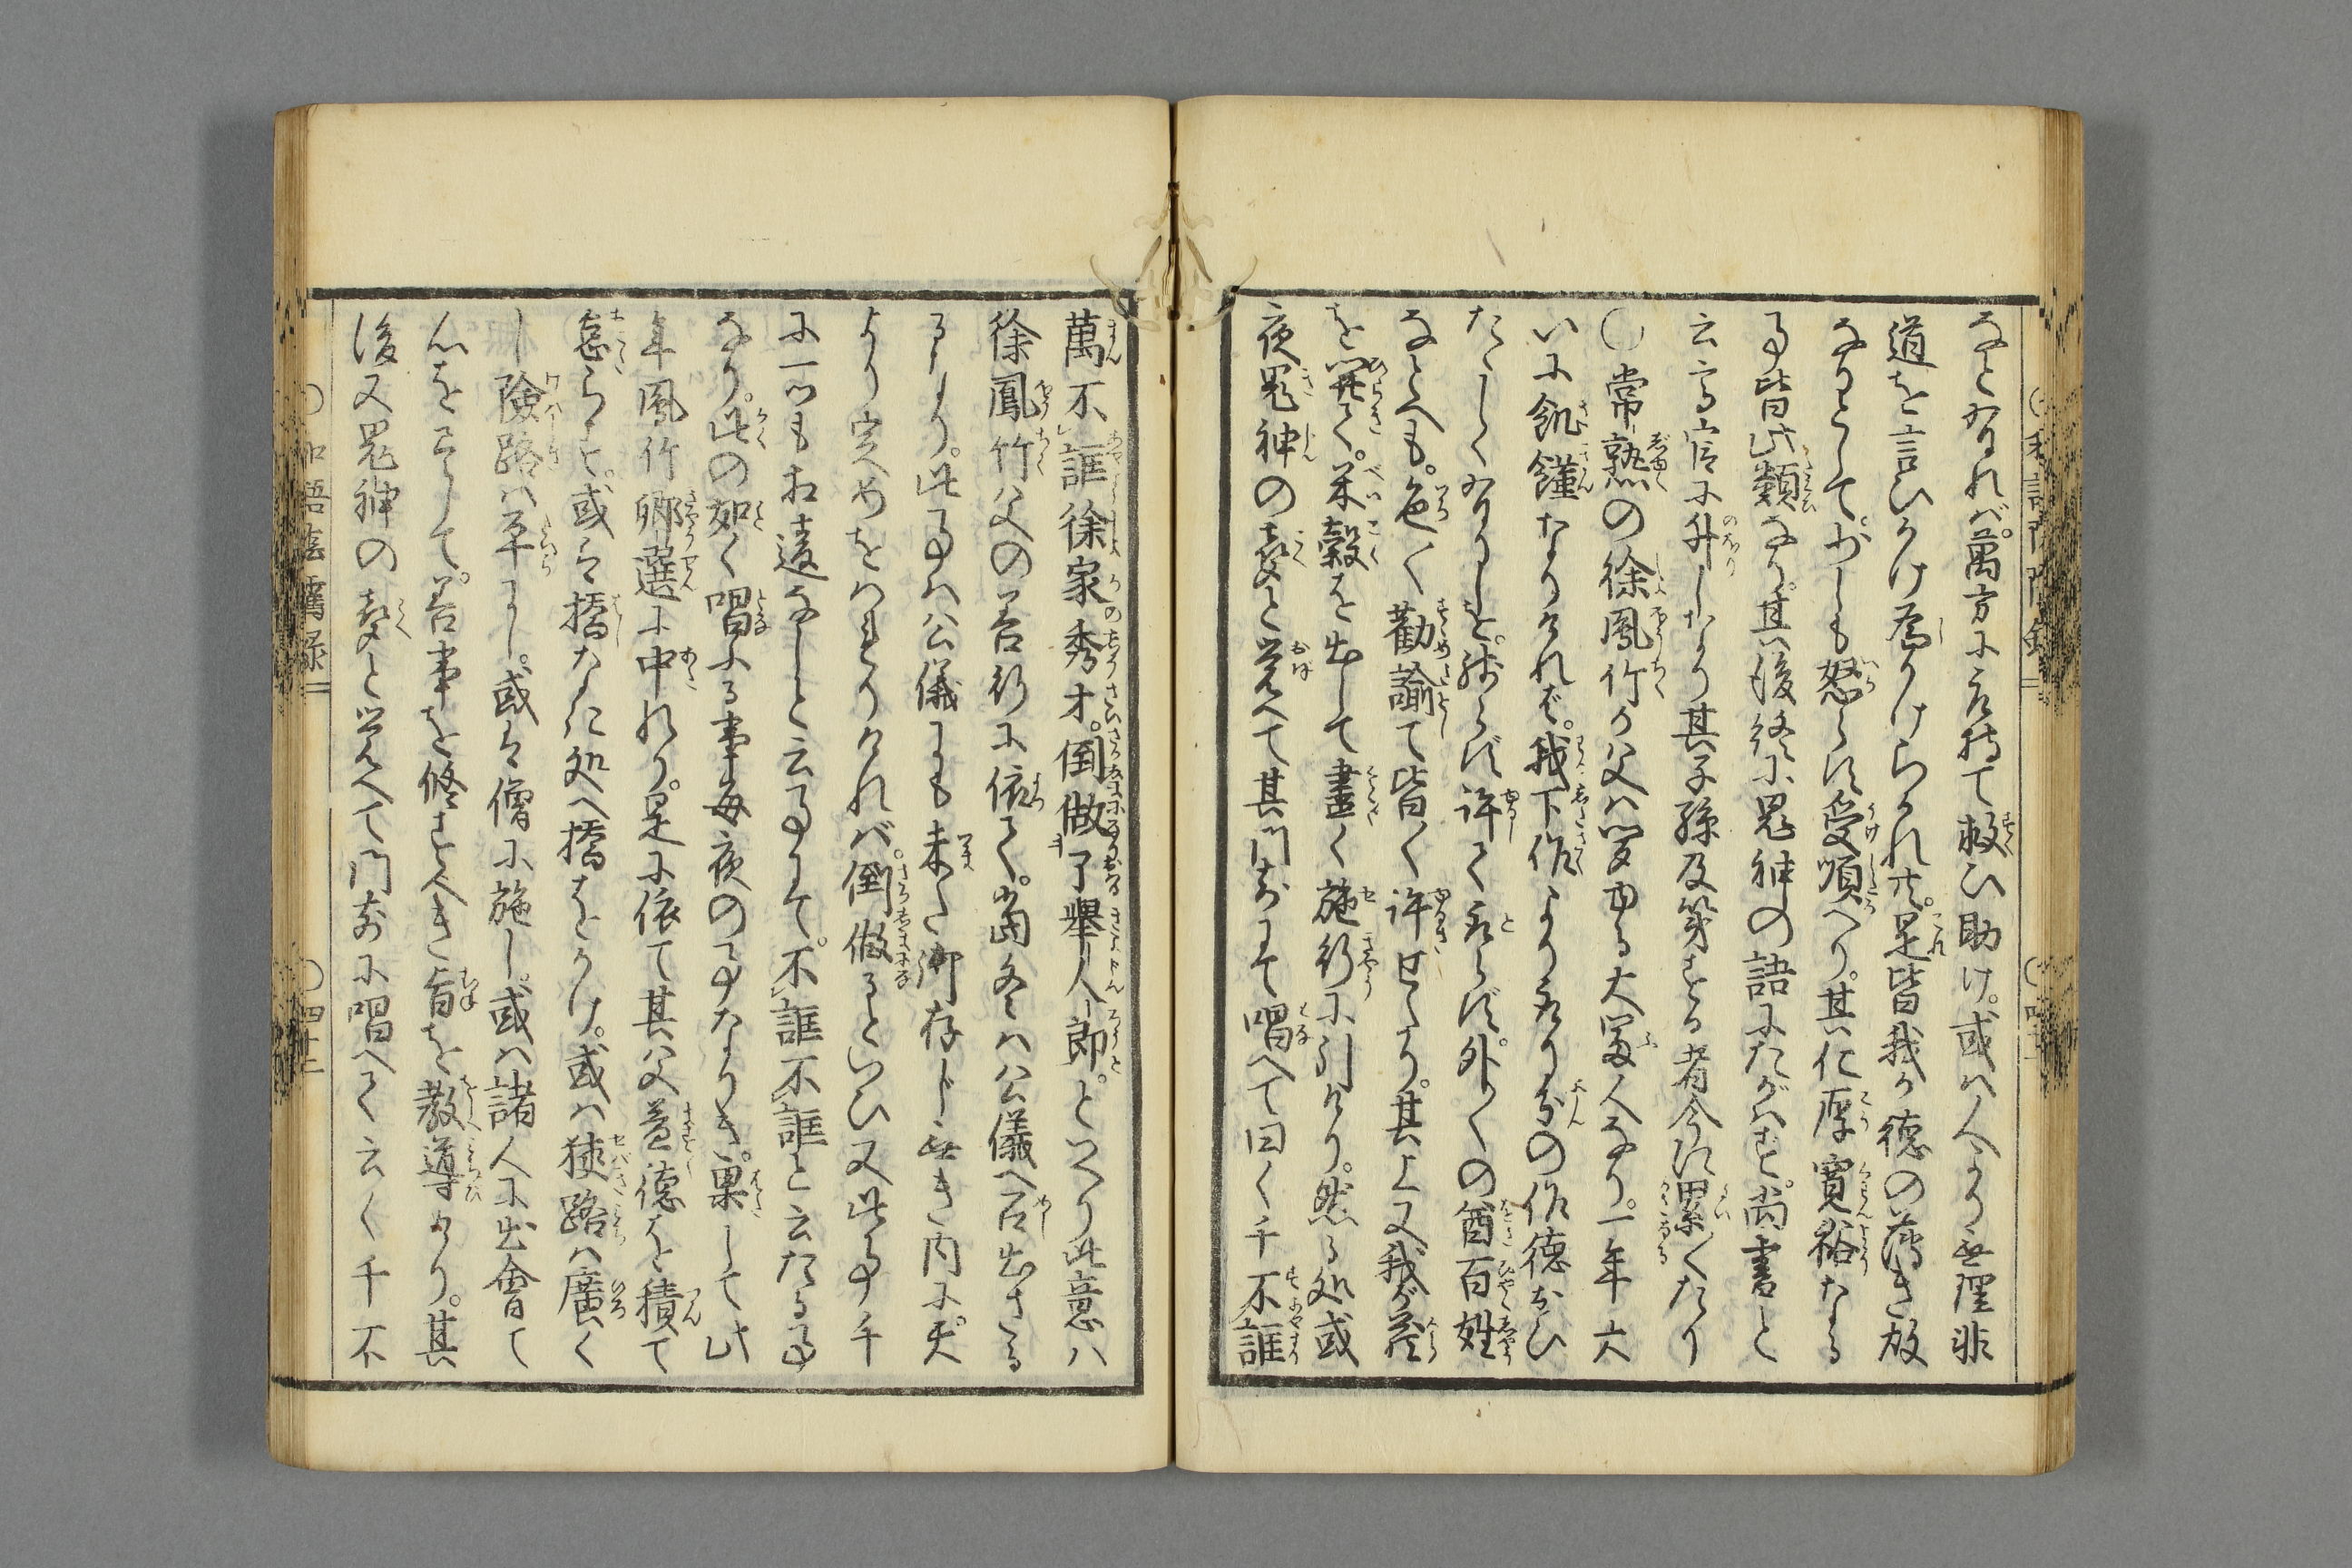 なとなれバ。萬方に取持て救ひ助け。或ハ人より無理非
道を言ひかけ為かけられ共。是皆我か徳の薄き故
なりとして。少しも怒らず受順へり。其仁厚寛裕なる
事皆此類なり。其後終に鬼神の語にたがハず。尚書と
云高官に升しなり其子孫及第する者今に累〱たり
〇常熟の徐鳳竹か父ハ聞ゆる大冨人なり。一年大
いに飢饉なりけれど。我下作より取る分の作徳おひ
たゝしくなりしを。残らず許て取らず。外〱の酋百姓
なとへも。色〱勧諭て皆〱許せたり。其上又我が蔵
を開て。米穀を出して盡く施行に引けり。然る処或
夜鬼神の聲と覚へて其門前にて唱へて曰く千不誑
萬不誑徐家秀才。倒做了擧人郎。といへり此意ハ
徐鳳竹父の善行に依て。當冬ハ公儀へ召出さる
るなり。此事ハ公儀にも未た御存じ無き内に。天
より定めをハ里けれバ。倒做るといひ又此事千
に一ツも相違なしと云事にて。不誑不誑と云たる事
なり。此の如く唱ふる事毎夜の事なりき。果して此
年鳳竹郷選に中れり。是に依て其父益徳を積て
怠らず。或ハ橋なき処へ橋をかけ。或ハ狭路ハ廣く
し険路ハ平にし。或ハ僧に施し。或ハ諸人に出會て
心を尽して。善事を修すへき旨を教導けり。其
後又鬼神の聲と覚へて門前に唱へて云く千不
〇和語陰隲録